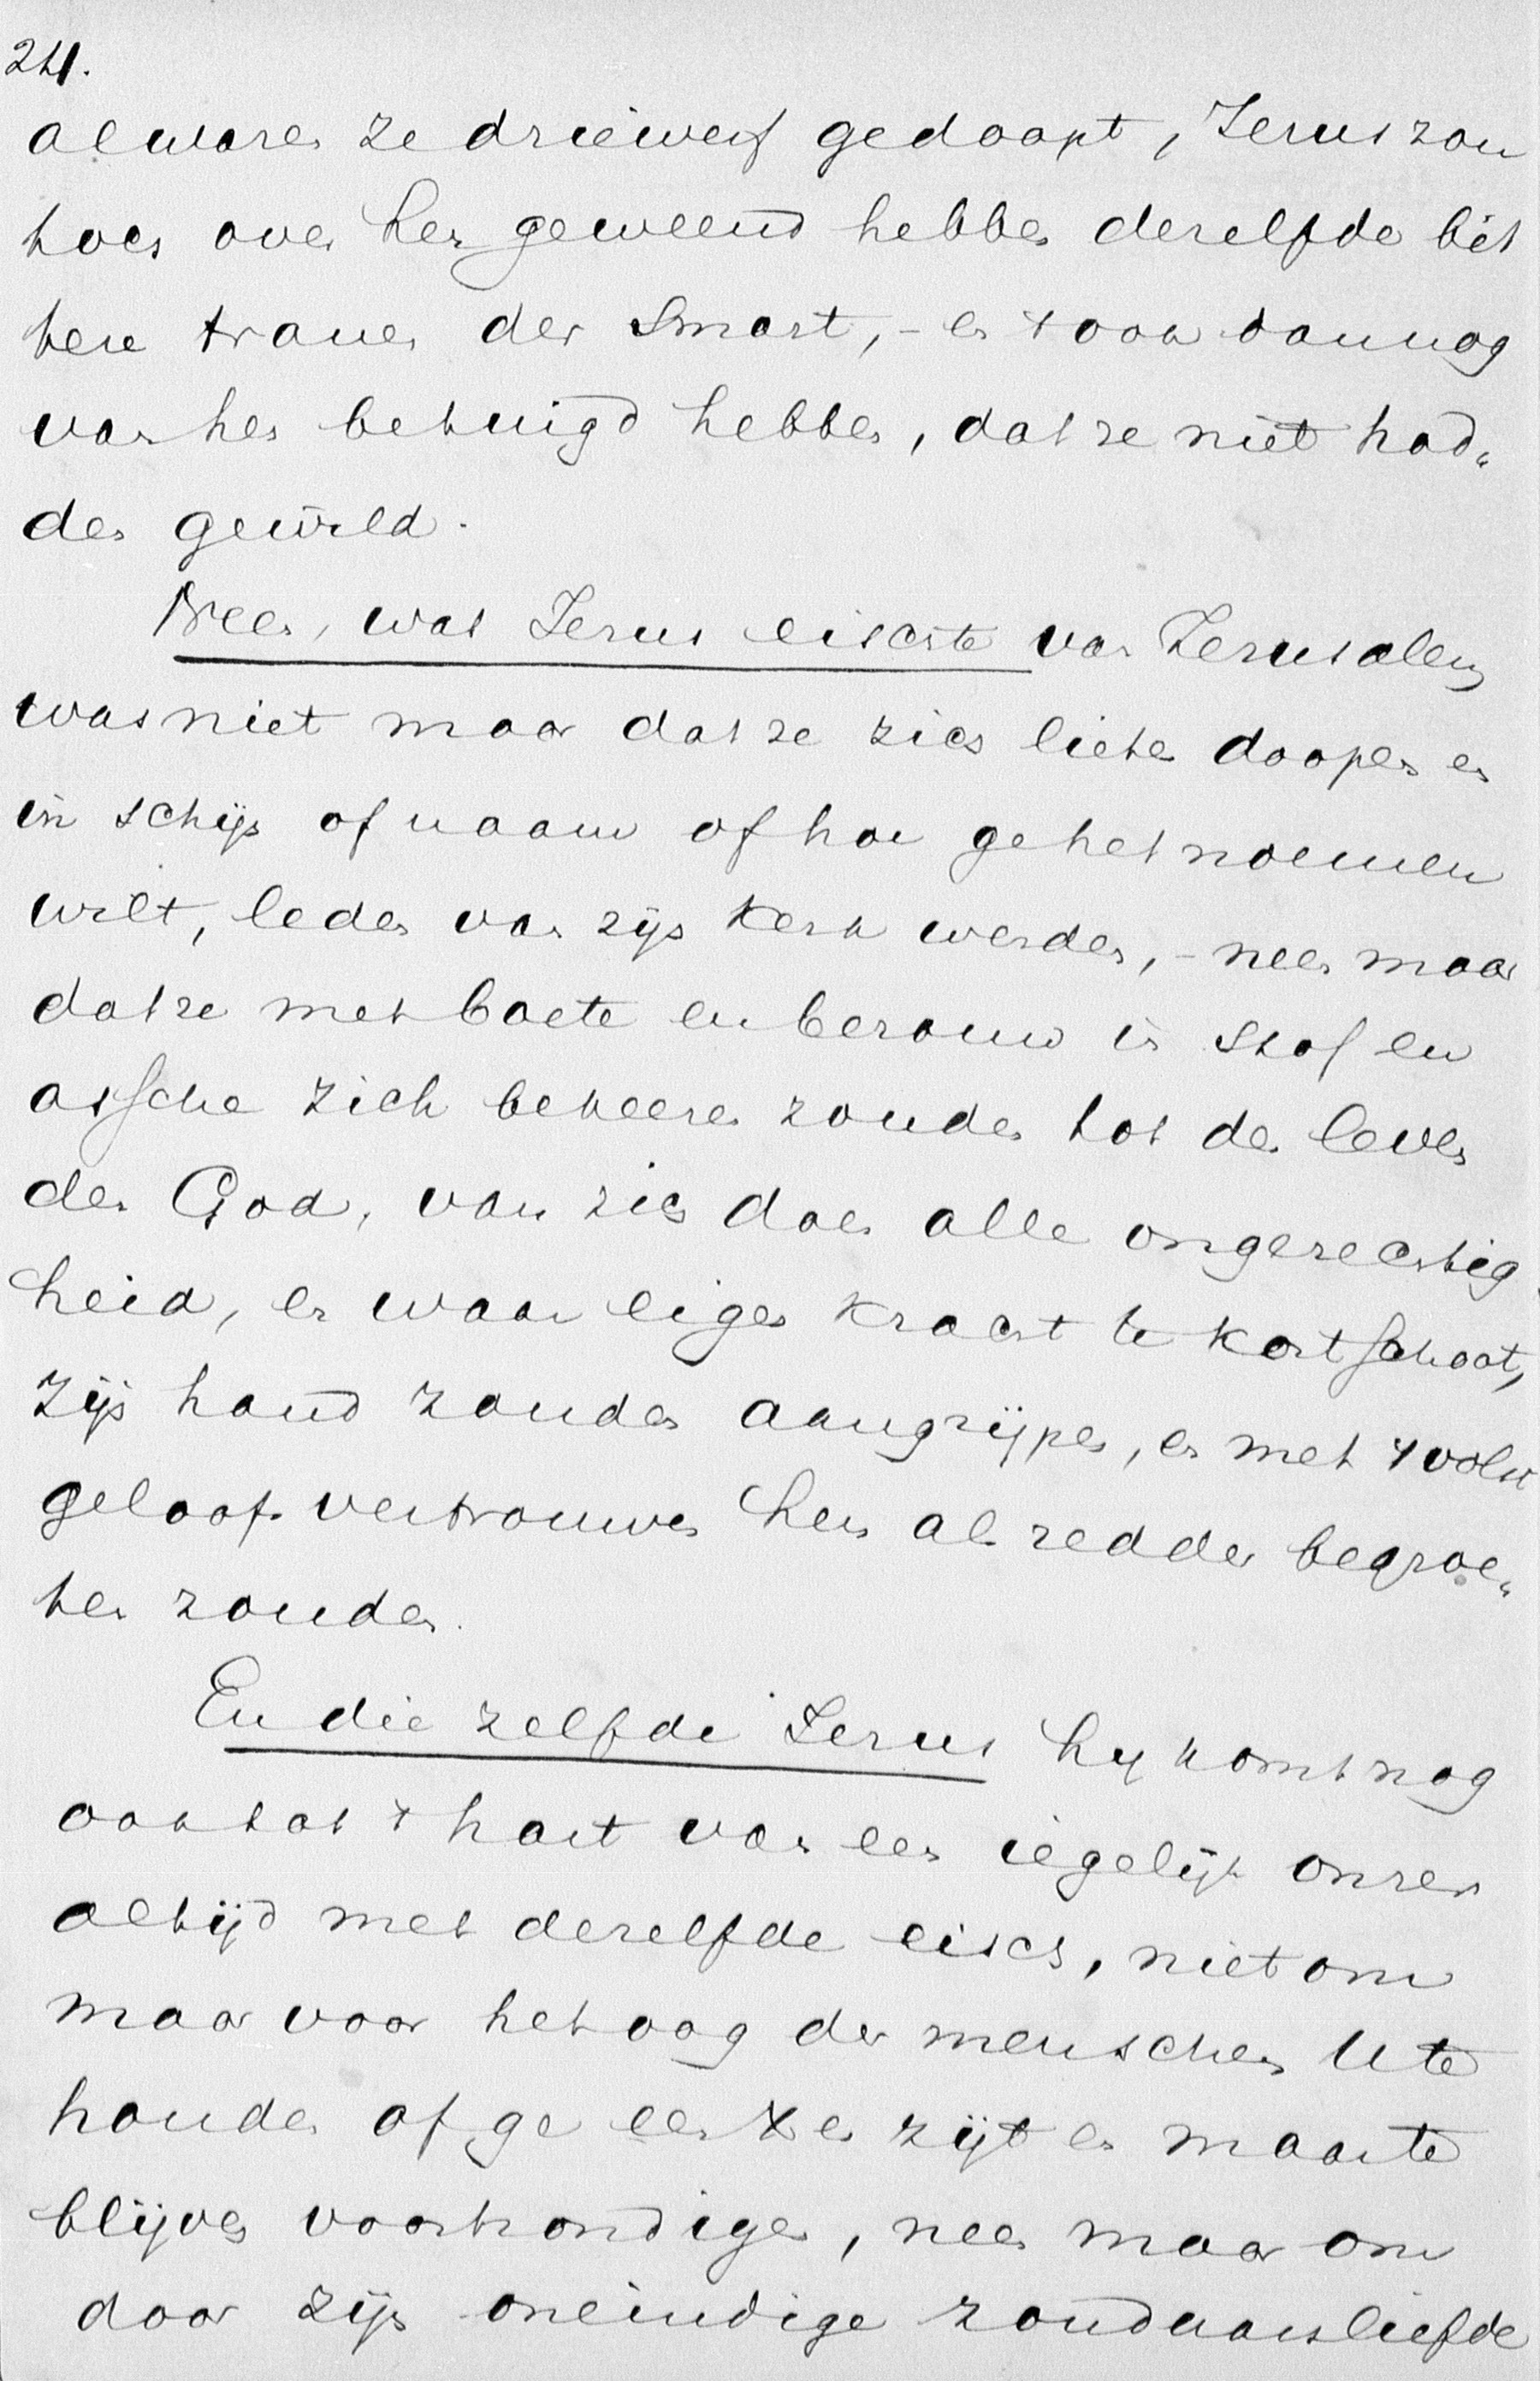 24.
al waren ze driewerf gedoopt, Jezus zou
toch over hen geweend hebben dezelfde bit
tere tranen der smart, - en ook dan nog
van hen betuigd hebben, dat ze niet had„
den gewild.
Neen, wat Jezus eischte van Jeruzalem
was niet maar dat ze zich lieten doopen en
in schijn of naam of hoe ge het noemen
wilt, leden van zijn kerk werden, - neen maar
dat ze met boete en berouw in stof en
assche zich bekeeren zouden tot den leven
den God, van zich doen alle ongerechtig-
heid, en waar eigen kracht te kort schoot,
zijn hand zouden aangrijpen, en met 't volst
geloofsvertrouwen hem als redder begroe„
ten zouden.
En die zelfde Jezus hij komt nog
ook tot 't hart van een iegelijk onzer
altijd met dezelfde eisch, niet om
maar voor het oog der menschen U te
houden of ge een X en zijt en maar te
blijven voorthondigen, neen maar om
door zijn oneindige zondaarsliefde